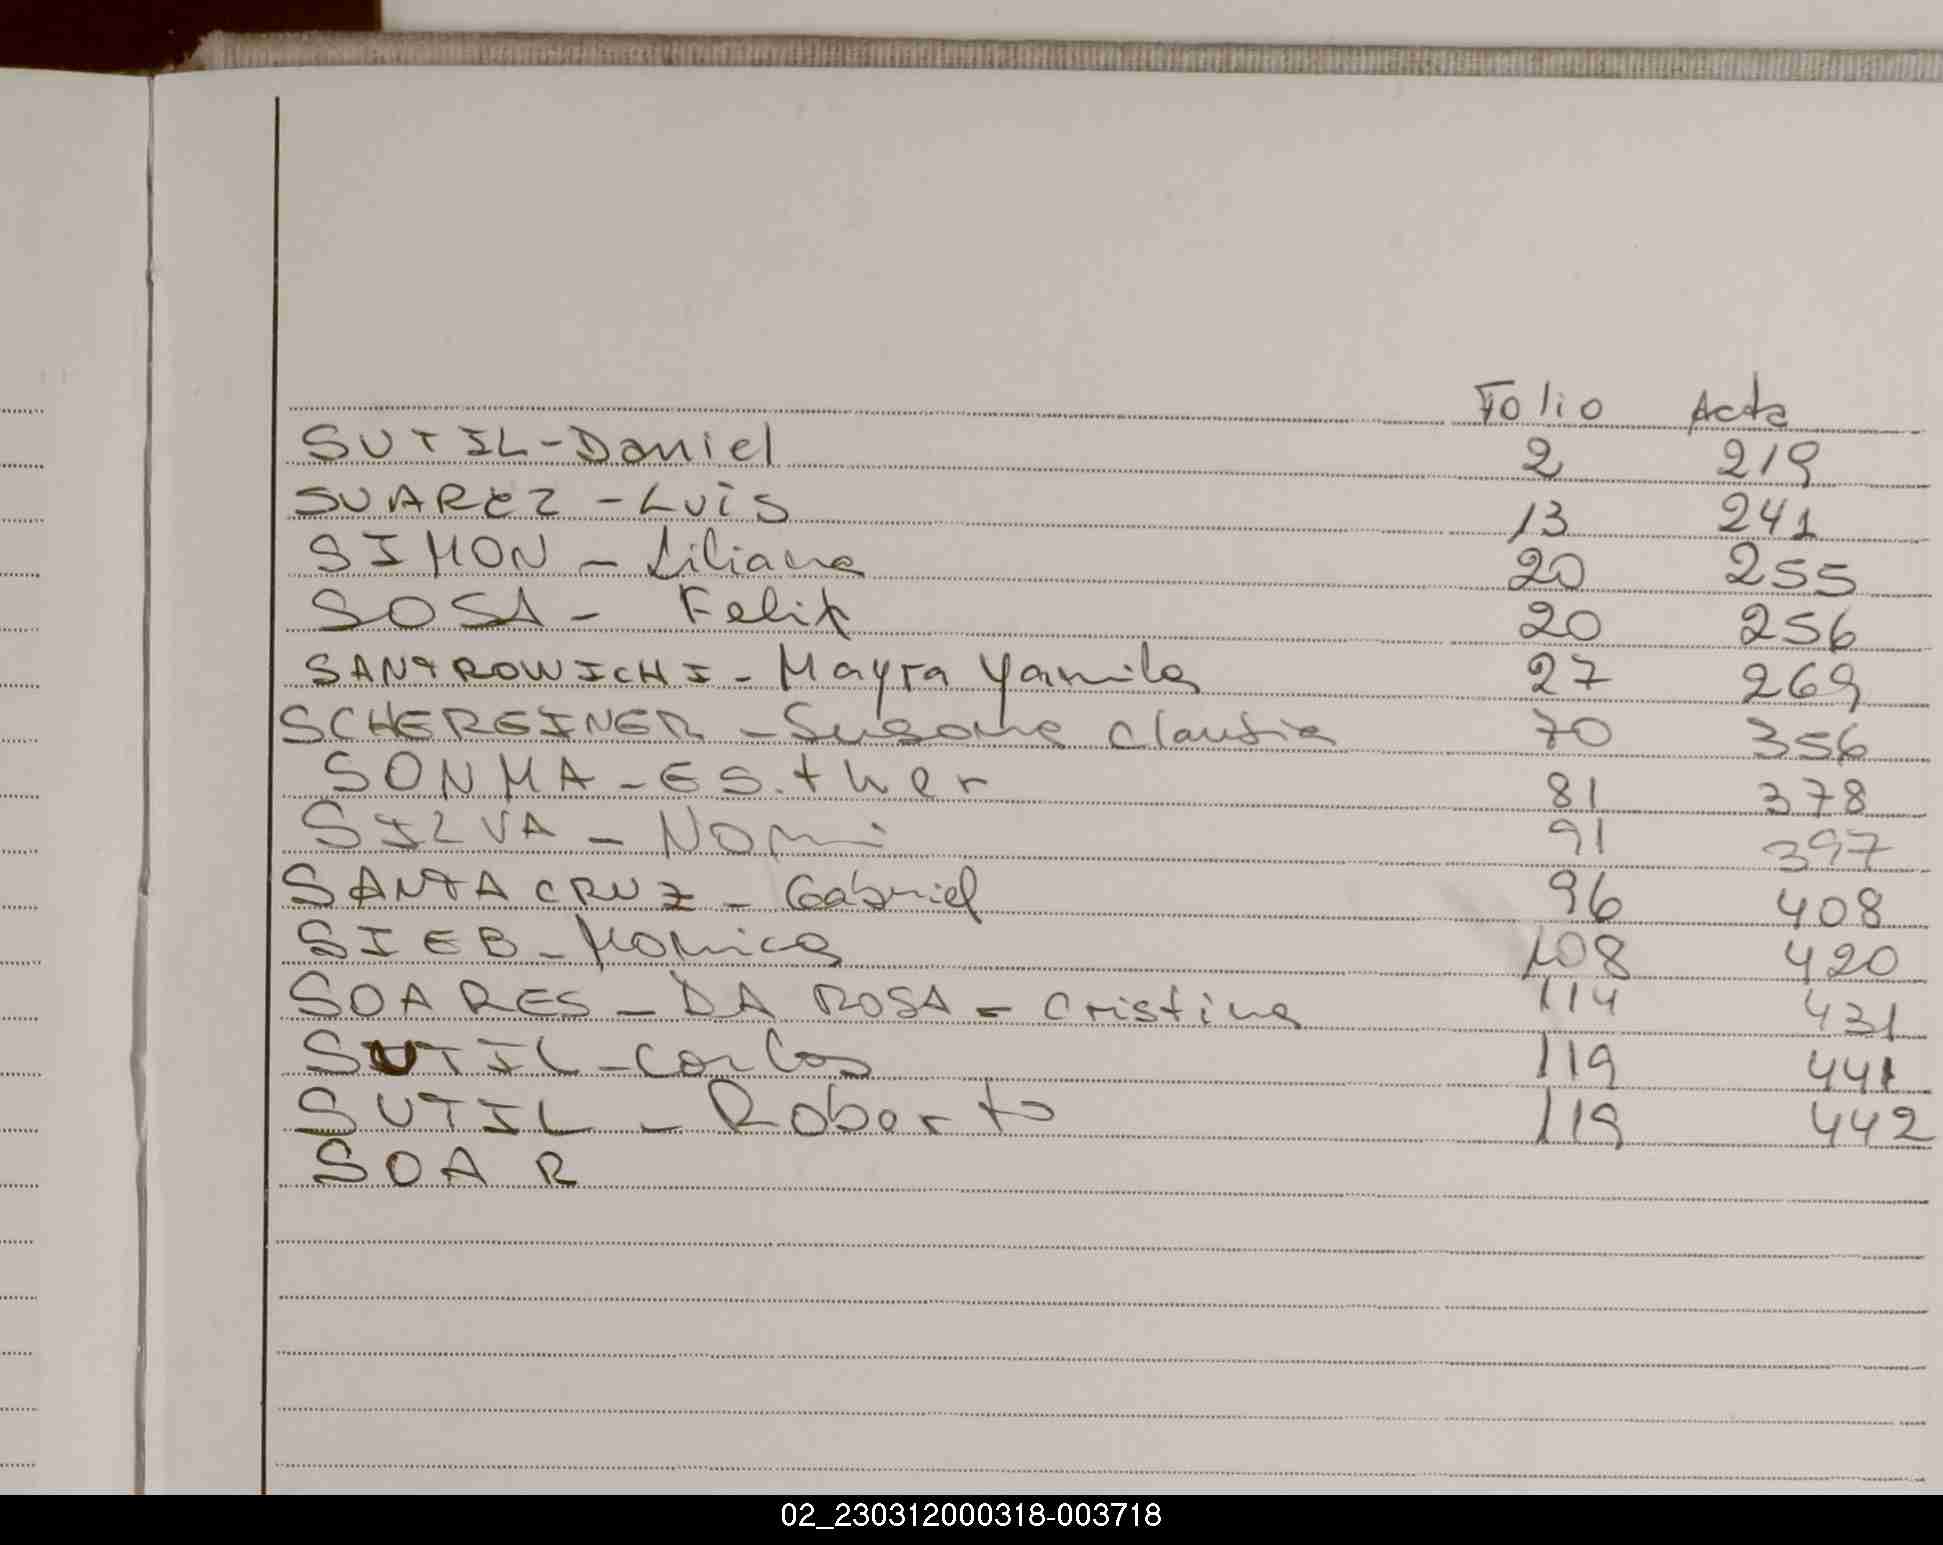 Folio Acta
SUTIL-Daniel 2 219
SUAREZ - Luis 13 241
SIMON - Liliana 20 255
SOSA - Felix 20 256
SANTROWICHI - Mayra Yamila 27 269
SCHEREINER - Susana Claudia 70 356
SONMA - Esther 81 378
SILVA - Nomi 91 397
SANTA CRUZ - Gabriel 96 408
SIEB - Monica 108 420
SOARES - DA ROSA - Cristina 114 431
SUTIL - Carlos 119 441
SUTIL - Roberto 119 442
SOAR
02_230312000318-003718